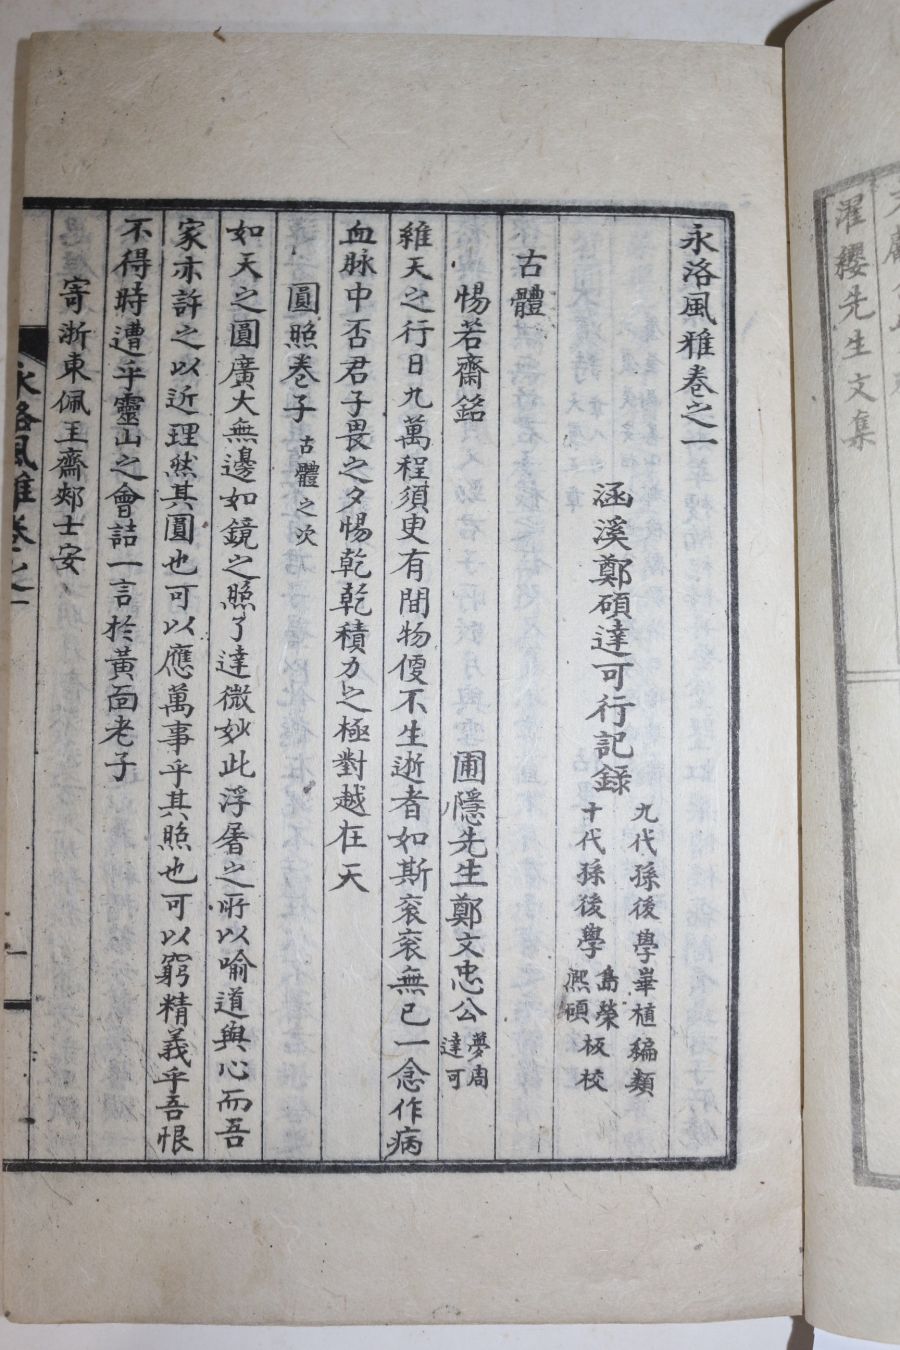 濯纓先生文集
永洛風雅卷之一
涵溪鄭碩達可行記録
九代孫後學䍐植編類
十代孫後學島榮 熈碩 板校
古體
惕若齋銘 圃隱先生鄭文忠公 夢周 達可
維天之行日九萬程須臾有間物便不生逝者如斯衮衮無已一念作病
血脉中否君子畏之夕惕乾乾積力之極對越在天
圓照卷子 古體之次
如天之圓廣大無邊如鏡之照了達微妙此浮屠之所以喻道與心而吾
家亦許之以近理然其圓也可以應萬事乎其照也可以窮精義乎吾恨
不得時遭乎靈山之會詰一言於黃面老子
寄浙東佩玉齋郟士安
永洛風雅卷之一
一